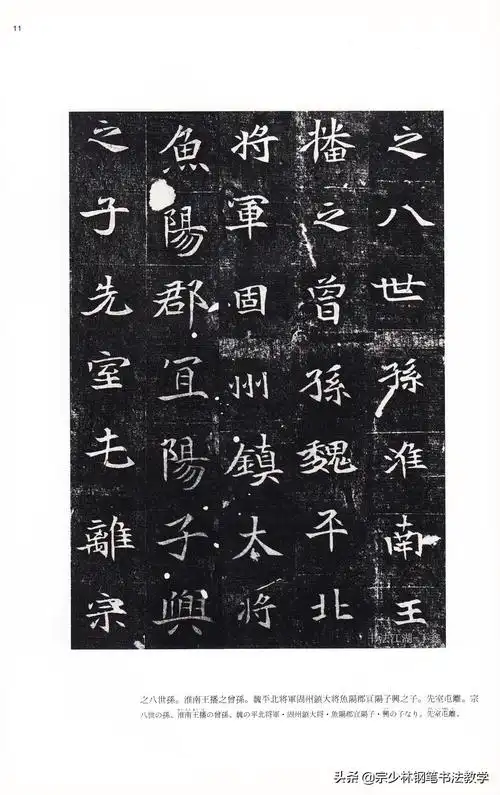 11
之八世孫淮南王
播之曾孫魏平北
將軍固州鎮大將
魚陽郡冝陽子興
之子先室屯離宗
之八世孫。淮南王播之曾孫。魏平北將軍固州鎮大將魚陽郡宜陽子興之子。先室屯離。宗
八世の孫、淮南王播の曾孫、魏の平北將軍・固州鎮大將・魚陽郡宜陽子・興の子なり。先室屯離、
头条 @宗少林钢笔书法教学